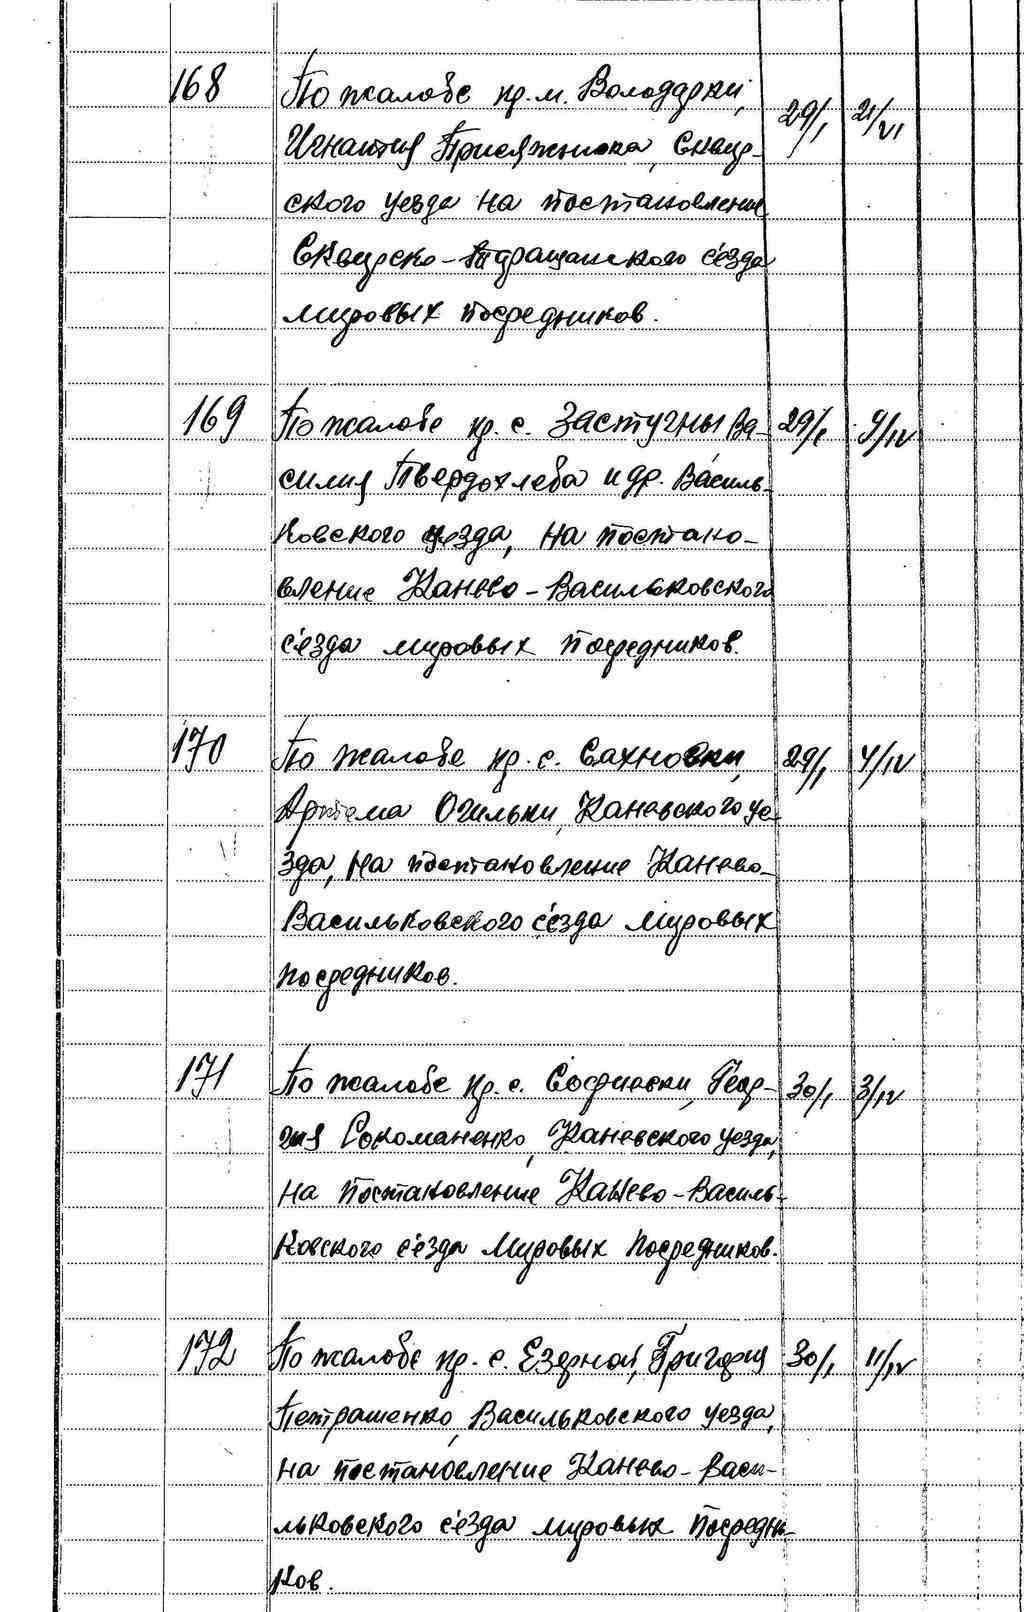 168 По жалобе кр. м. Володарки,
Игнатия Присяжнюка, Сквир-
ского уезда на постановление 29/I 21/VI
Сквирско-Таращанского сьезда
мировых посредников.
169 По жалобе кр. с. Застугны Ва- 29/I 9/IV
силия Твердохлеба и др. Василь-
ковского уезда, на постано-
вление Канево-Васильковского
сьезда мировых посредников.
170 По жалобе кр. с. Сахновки, 29/I 4/IV
Артема Огильки, Каневского уе-
зда, на постановление Канево-
Васильковского сьезда мировых
посредников.
171 По жалобе кр. с. Софиевки, Геор- 30/I 3/IV
гия Сокоманенко, Каневского уезда,
на постановление Канево-Василь-
ковского сьезда мировых посредников.
172 По жалобе кр. с. Езерной, Григория 30/I 11/IV
Петрашенко, Васильковского уезда,
на постановление Канево-Васи-
льковского сьезда мировых посредни-
ков.